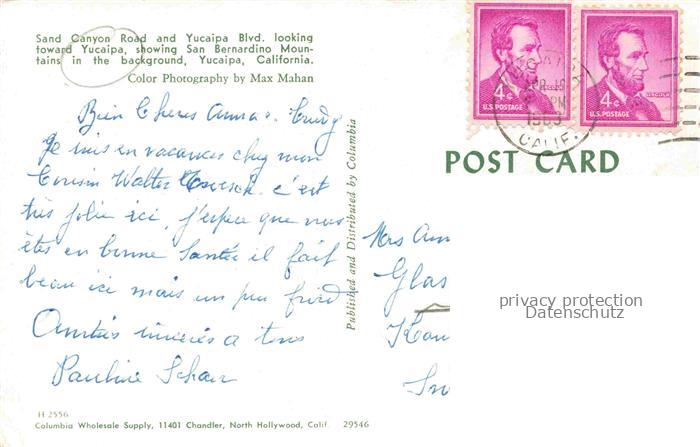 Sand Canyon Road and Yucaipa Blvd. looking
toward Yucaipa, showing San Bernardino Moun-
tains in the background, Yucaipa, California.
Color Photography by Max Mahan
Bien Cheres Anna &. Trudy
Je suis en vacances chez mon
Cousin Walter c'est
très jolie ici, j'espere que vous
êtes en bonne Santée il fait
beau ici mais un peu froid
Amitiés sinceres a tous
Pauline Schar
H 2556
Columbia Wholesale Supply, 11401 Chandler, North Hollywood, Calif. 29546
Published and Distributed by Columbia
4¢
U.S. POSTAGE
4¢
LINCOLN
U.S. POSTAGE
YUCAIPA
APR 18
PM
1963
CALIF.
POST CARD
Mrs Ann
Glas
Kan
privacy protection
Datenschutz